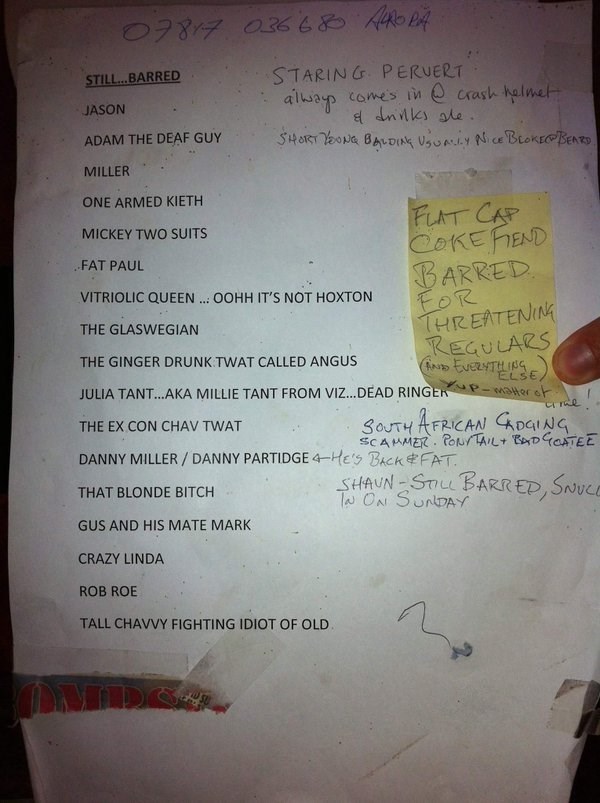 07847 036680
STILL...BARRED
STARING PERVERT
always comes in @ crash helmet
& drinks ale.
JASON
ADAM THE DEAF GUY
SHORT YOUNG BALDING USUALLY NICE BLOKE BEARD
MILLER
ONE ARMED KIETH
MICKEY TWO SUITS
FAT PAUL
VITRIOLIC QUEEN ... OOHH IT'S NOT HOXTON
THE GLASWEGIAN
THE GINGER DRUNK TWAT CALLED ANGUS
JULIA TANT...AKA MILLIE TANT FROM VIZ...DEAD RINGER
FLAT CAP
COKE FIEND
BARRED
FOR
THREATENING
REGULARS
(AND EVERYTHING
ELSE)
YUP - matter of
time!
THE EX CON CHAV TWAT
SOUTH AFRICAN CADGING
SCAMMER. PONYTAIL + BAD GOATEE
DANNY MILLER / DANNY PARTIDGE ← HE'S BACK & FAT.
THAT BLONDE BITCH
SHAUN - STILL BARRED,
IN ON SUNDAY
GUS AND HIS MATE MARK
CRAZY LINDA
ROB ROE
TALL CHAVVY FIGHTING IDIOT OF OLD